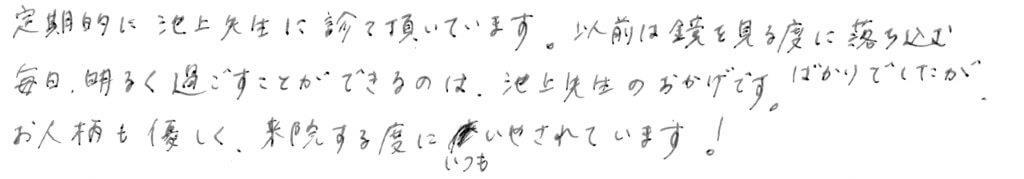 定期的に池上先生に診て頂いています。以前は鏡を見る度に落ち込む
ばかりでしたが、
毎日、明るく過ごすことができるのは、池上先生のおかげです。
お人柄も優しく、来院する度にいやされています！
いつも